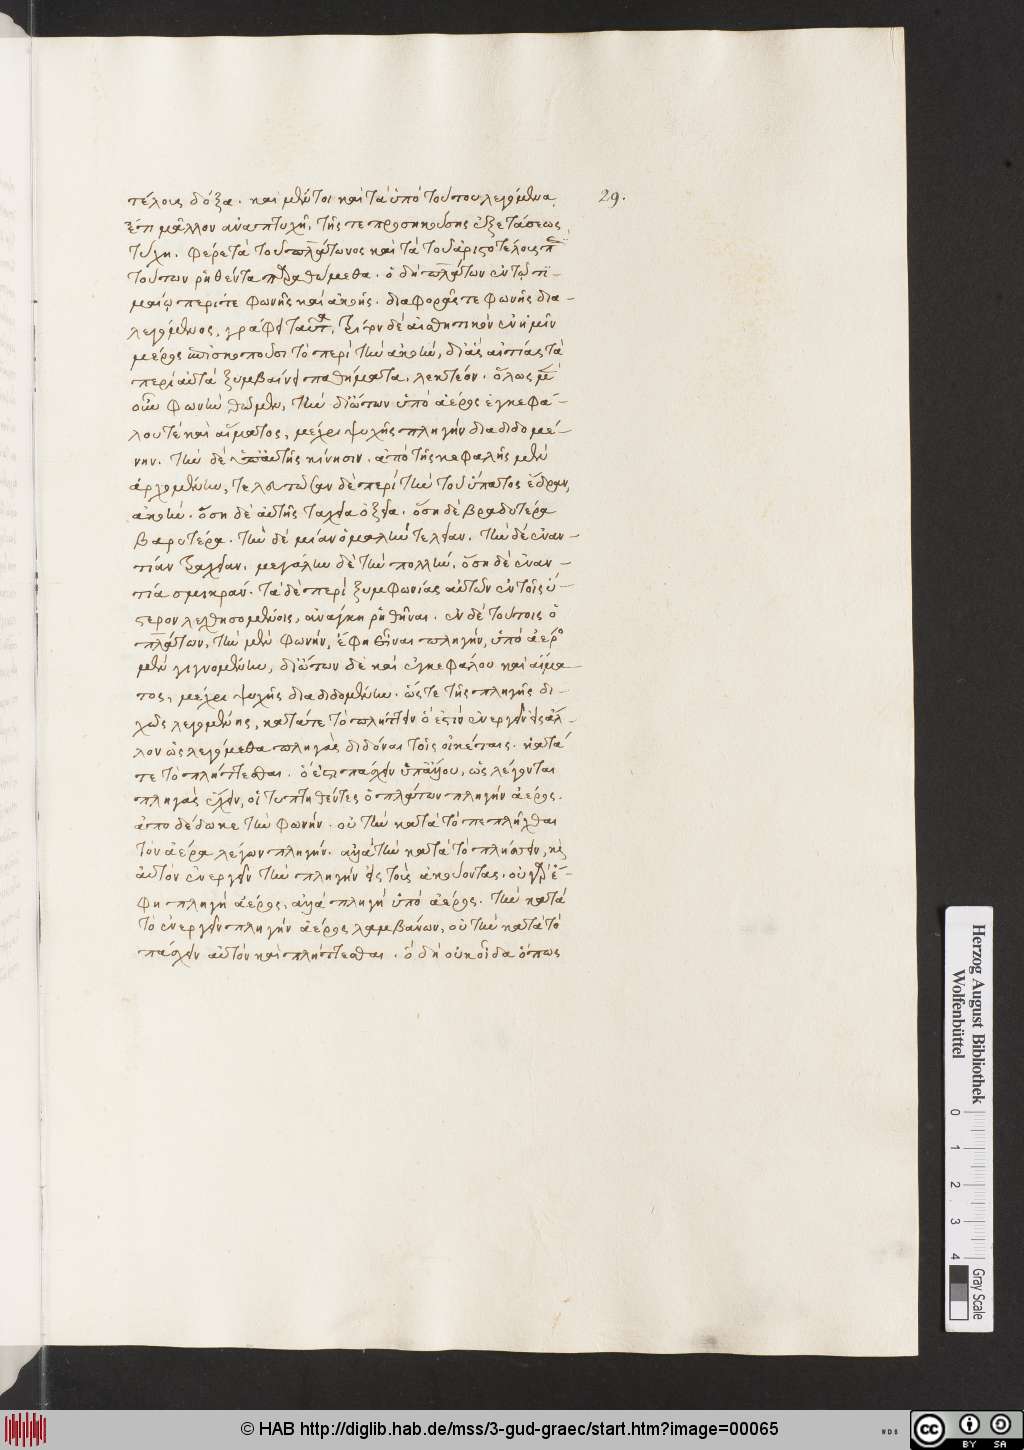 τέλους δόξα. καὶ μέντοι καὶ τὰ ὑπὸ τούτου λεγόμενα, 29.
ἔτι μᾶλλον ἀναπτυχῆ, τῆς τε προσηκούσης ἐξετάσεως
τύχη. φέρε τὰ τοῦ πλάτωνος καὶ τὰ τοῦ ἀριστοτέλους
τούτων ῥηθέντα παραθώμεθα. ὁ δὴ πλάτων ἐν τῷ τι-
μαίῳ περί τε φωνῆς καὶ ἀκοῆς. διαφορᾶς τε φωνῆς δια-
λεγόμενος, γράφει ταῦτα, τρίτον δὲ αἰσθητικὸν ἐν ἡμῖν
μέρος ἐπισκοποῦσι τὸ περὶ τὴν ἀκοὴν, δι' ἃς αἰτίας τὰ
περὶ αὐτὰ ξυμβαίνει παθήματα, λεκτέον. ὅλως μὲν
οὖν φωνὴν θῶμεν, τὴν δι' ὤτων ὑπὸ ἀέρος ἐγκεφά-
λου τὲ καὶ αἵματος, μέχρι ψυχῆς πληγὴν διαδιδομέ-
νην. τὴν δὲ αὐτῆς κίνησιν. ἀπὸ τῆς κεφαλῆς μὲν
ἀρχομένην, τελευτῶσαν δὲ περὶ τὴν τοῦ ὕπατος ἕδραν,
ἀκοὴν. ὅση δὲ αὐτῆς ταχεῖα ὀξεῖα. ὅση δὲ βραδυτέρα
βαρυτέρα. τὴν δὲ μίαν ὁμαλήν τελείαν. τὴν δὲ ἐναν-
τίαν τραχεῖαν. μεγάλην δὲ τὴν πολλὴν, ὅση δὲ ἐναν-
τία σμικράν. τὰ δὲ περὶ ξυμφωνίας αὐτῶν ἐν τοῖς ὕ-
στερον λεχθησομένοις, ἀνάγκη ῥηθῆναι. ἐν δὲ τούτοις ὁ
πλάτων, τὴν μὲν φωνήν, ἔφη εἶναι πληγήν, ὑπὸ ἀέρος
μὲν γιγνομένην, δι' ὤτων δὲ καὶ ἐγκεφάλου καὶ αἵμα-
τος, μέχρι ψυχῆς διαδιδομένην. ὥστε τῆς πληγῆς δι-
χῶς λεγομένης, κατά τε τὸ πλήττειν ὅ ἐστιν ἐνεργεῖν εἰς ἄλ-
λον ὡς λεγόμεθα πληγὰς διδόναι τοῖς οἰκέταις. κατά
τε τὸ πλήττεσθαι. ὅ ἐστι πάσχειν ὑπ' ἄλλου, ὡς λέγονται
πληγὰς ἔχειν, οἱ τυπτηθέντες ὁ πλάτων πληγὴν ἀέρος.
ἀποδέδωκε τὴν φωνήν. οὐ τὴν κατὰ τὸ πεπλῆχθαι
τὸν ἀέρα λέγων πληγήν. ἀλλὰ τὴν κατὰ τὸ πλήττειν, καὶ
αὐτὸν ἐνεργεῖν τὴν πληγήν εἰς τοὺς ἀκούοντας. οὐ γὰρ ἔ-
φη πληγὴ ἀέρος, ἀλλὰ πληγὴ ὑπὸ ἀέρος. τὴν κατὰ
τὸ ἐνεργεῖν πληγὴν ἀέρος λαμβάνων, οὐ τὴν κατὰ τὸ
πάσχειν αὐτὸν καὶ πλήττεσθαι. ὁ δὴ οὐκ οἶδα ὅπως
Herzog August Bibliothek
Wolfenbüttel
0 1 2 3 4
Gray Scale
© HAB http://diglib.hab.de/mss/3-gud-graec/start.htm?image=00065
cc BY SA